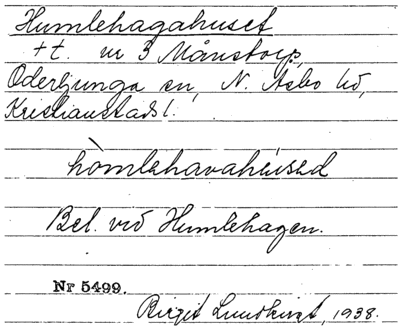 Humlehagahuset
+t. m 3 Månstorp,
Oderljunga sn, N. Åsbo hd,
Kristianstads l.
hòmlehavahúsəd
Bel. vid Humlehagen.
Nr 5499.
Birgit Lundkvist, 1938.